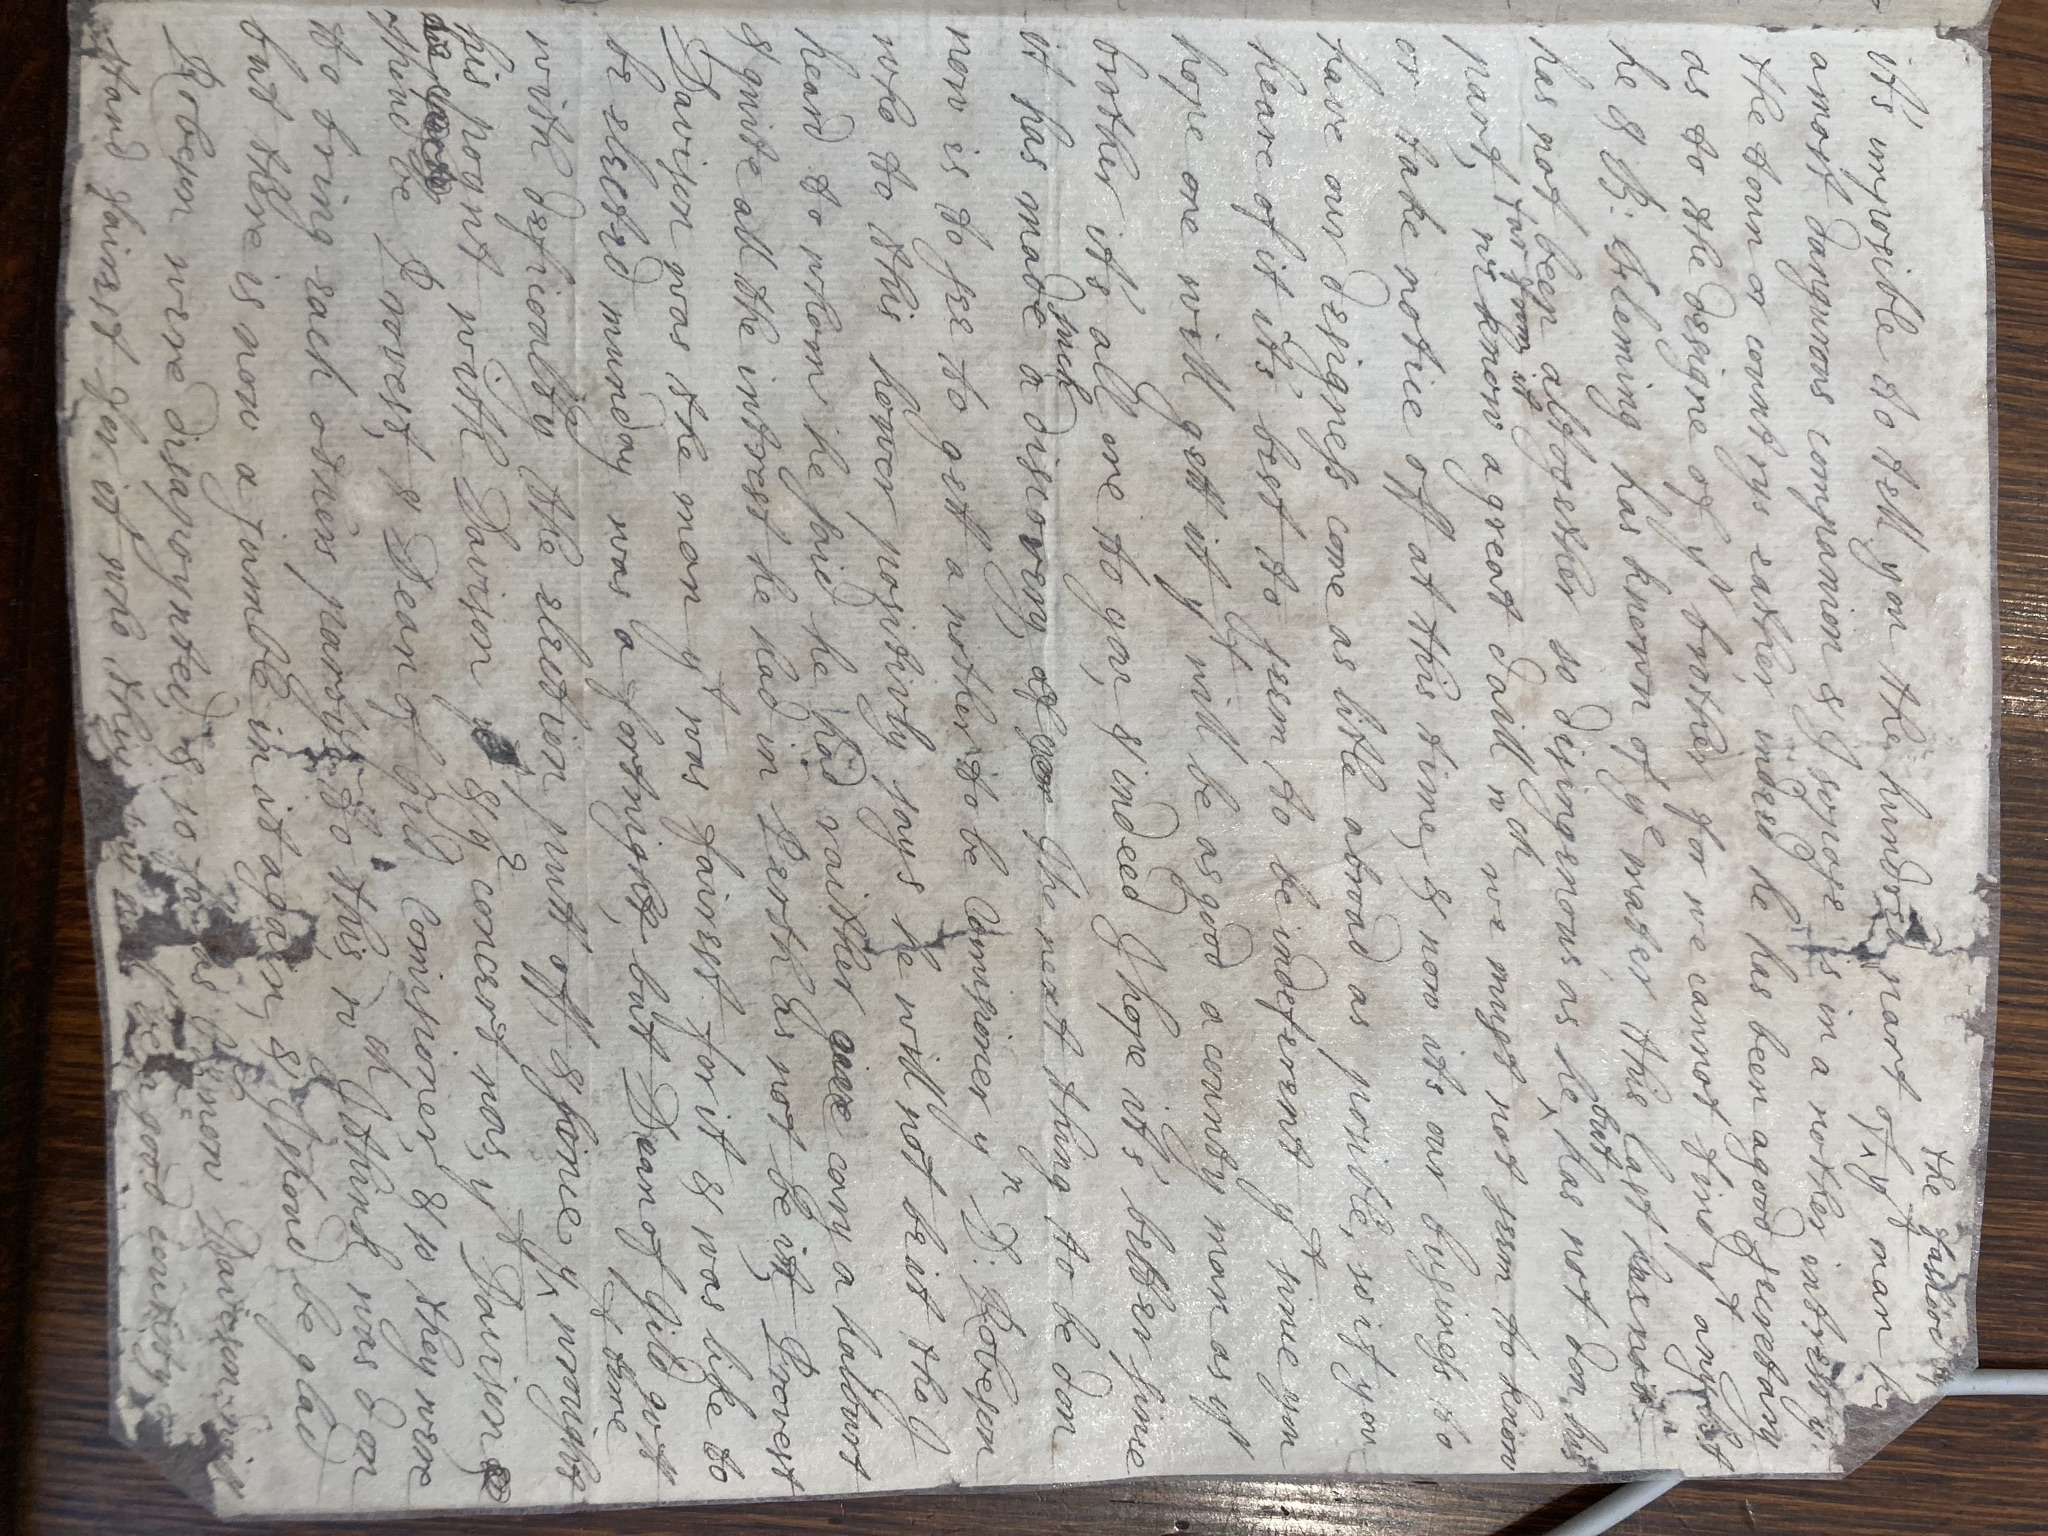 the
it's imposible to tell you the hundred part of ^ yt man
a most dangurous companion & I sopose is in a nother intrest
the toun or countrys eather, indeed he has been a good secretary
as to the designe of yr brother for we cannot find yt any bot
he & R: Fleming has known of ye mater, this last has not
has not been altogether so disingenous as he ^ but has not don his
part, far from it we know a great daill wch we must not seem to know
or take notice off at this time, & now its our business to
have our designess come as litle abroad as posible, so if you
heare of it it's best to seem to be indeferent yt since you
hope one will gett it yt will be as good a county man as yr
brother it's all one to you, & indeed I hope it's better since
it has made such a discovery, of yor The next thing to be don
now is to see to gett a nother to be Comisioner yn D: Robeson
who to this hower positivly says he will not be it tho I
heard to whom he said he had raither give cary a halburt
& quite all the intrest he had in Perth as not be itt, Provest
Davison was the man yt was fairest for it & was like to
be elected munday was a fortnight, but Dean of Gild gott
with deficoulty the election putt off, & since yt ^ time wrought
his poynt with Davison yt & ye concert was, yt Davison
his party
shoud be Provest, & Dean of Gild Comisioner, & so they were
to bring each others partys to this, wch I think was don
but there is now a jumble in it again, & I shoud be glad
Robeson were disapoynted, & so far as I know Davison will
stand fairest for it who they say will be a good county